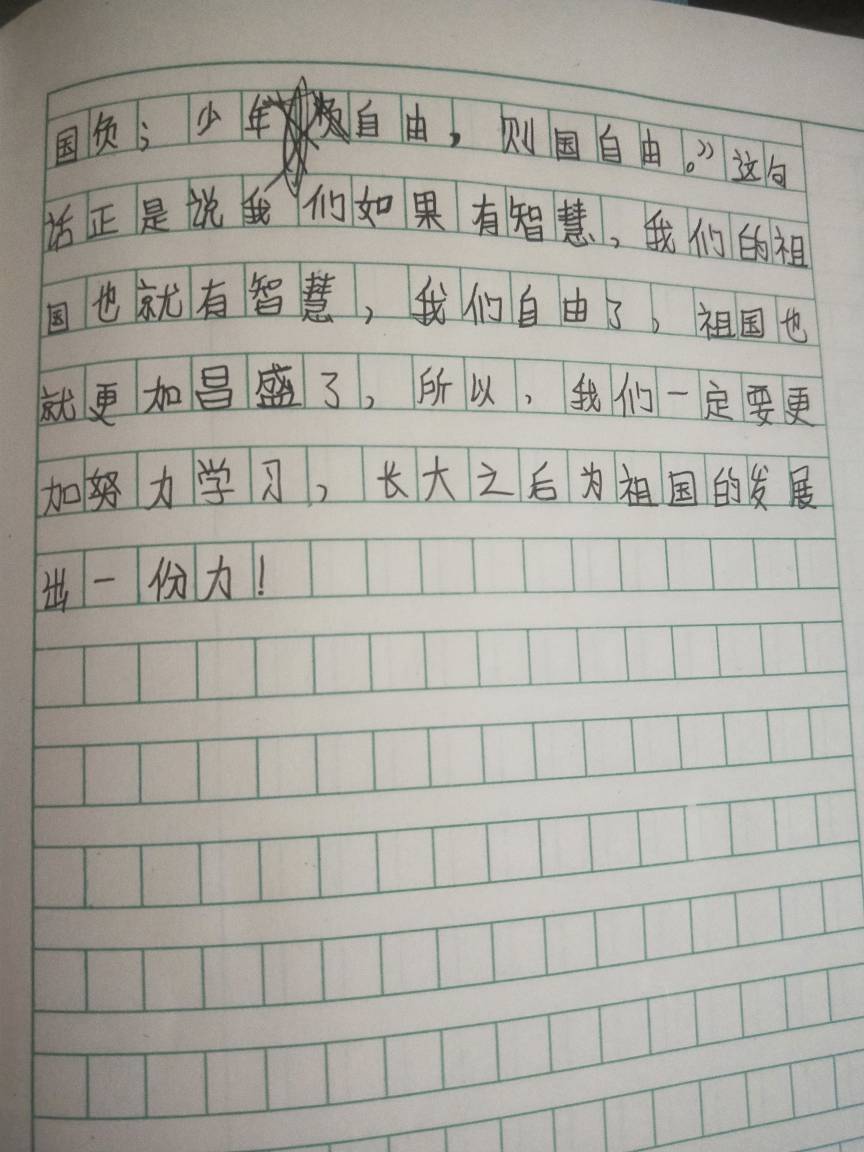 国负；少年自由，则国自由。”这句
话正是说我们如果有智慧，我们的祖
国也就有智慧，我们自由了，祖国也
就更加昌盛了，所以，我们一定要更
加努力学习，长大之后为祖国的发展
出一份力！